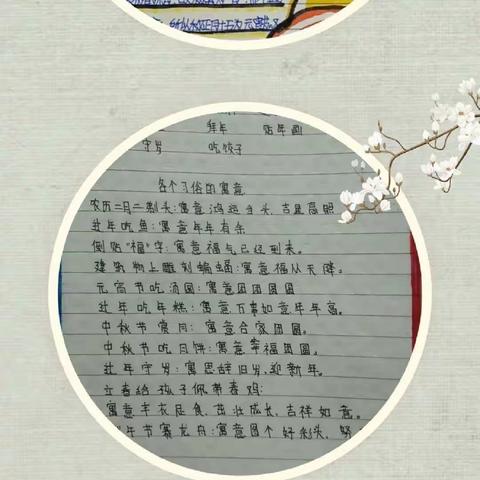 拜年 贴年画
守岁 吃饺子
各个习俗的寓意
农历二月二剃头:寓意鸿运当头、吉星高照
过年吃鱼:寓意年年有余
倒贴"福"字:寓意福气已经到来。
建筑物上雕刻蝙蝠:寓意福从天降。
元宵节吃汤圆:寓意团团圆圆
过年吃年糕:寓意万事如意年年高。
中秋节赏月:寓意合家团圆。
中秋节吃月饼:寓意幸福团圆。
过年守岁:寓思辞旧岁,迎新年。
立春给孩子佩带春鸡:
寓意丰衣足食、茁壮成长、吉祥如意。
午节赛龙舟:寓意图个好彩头、努